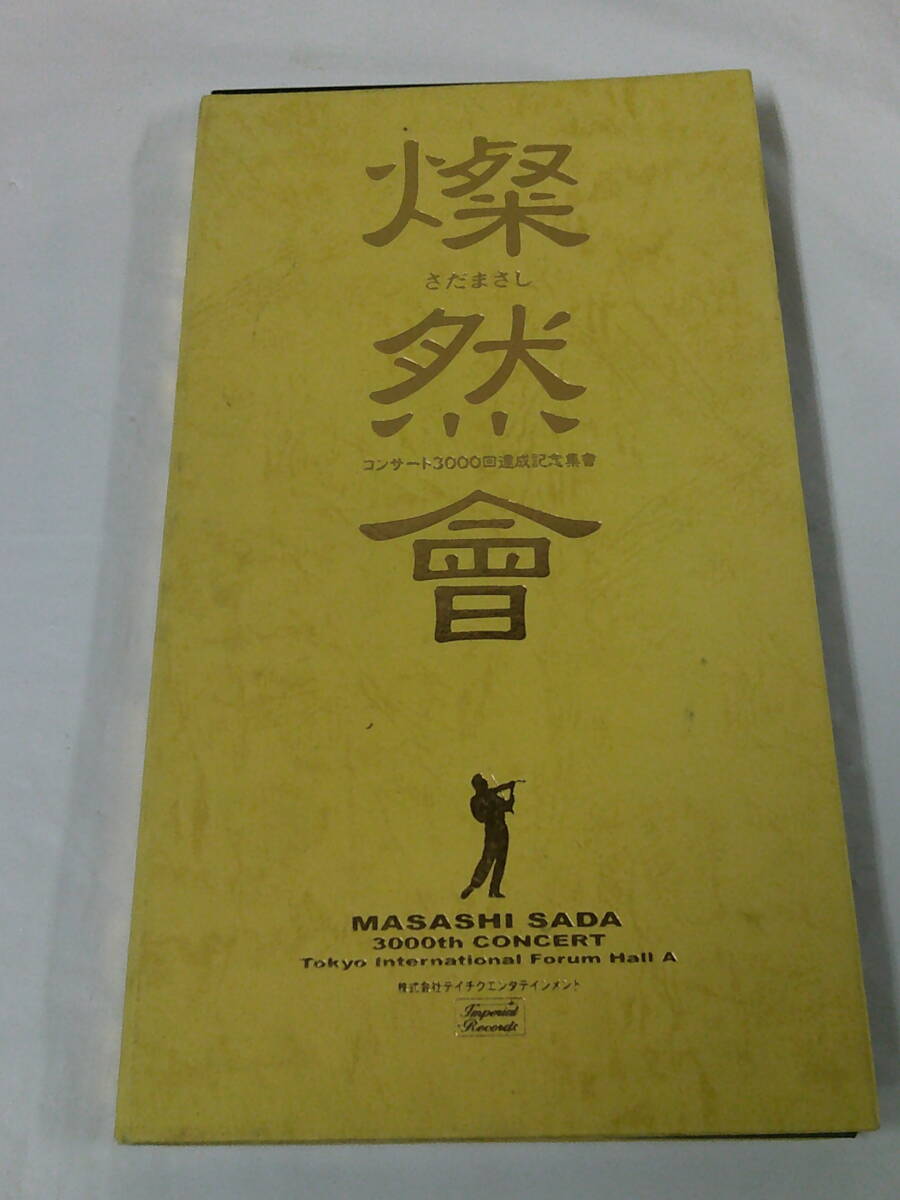 燦
さだまさし
然
コンサート3000回達成記念集會
會
MASASHI SADA
3000th CONCERT
Tokyo International Forum Hall A
株式会社テイチクエンタテインメント
Imperial
Records